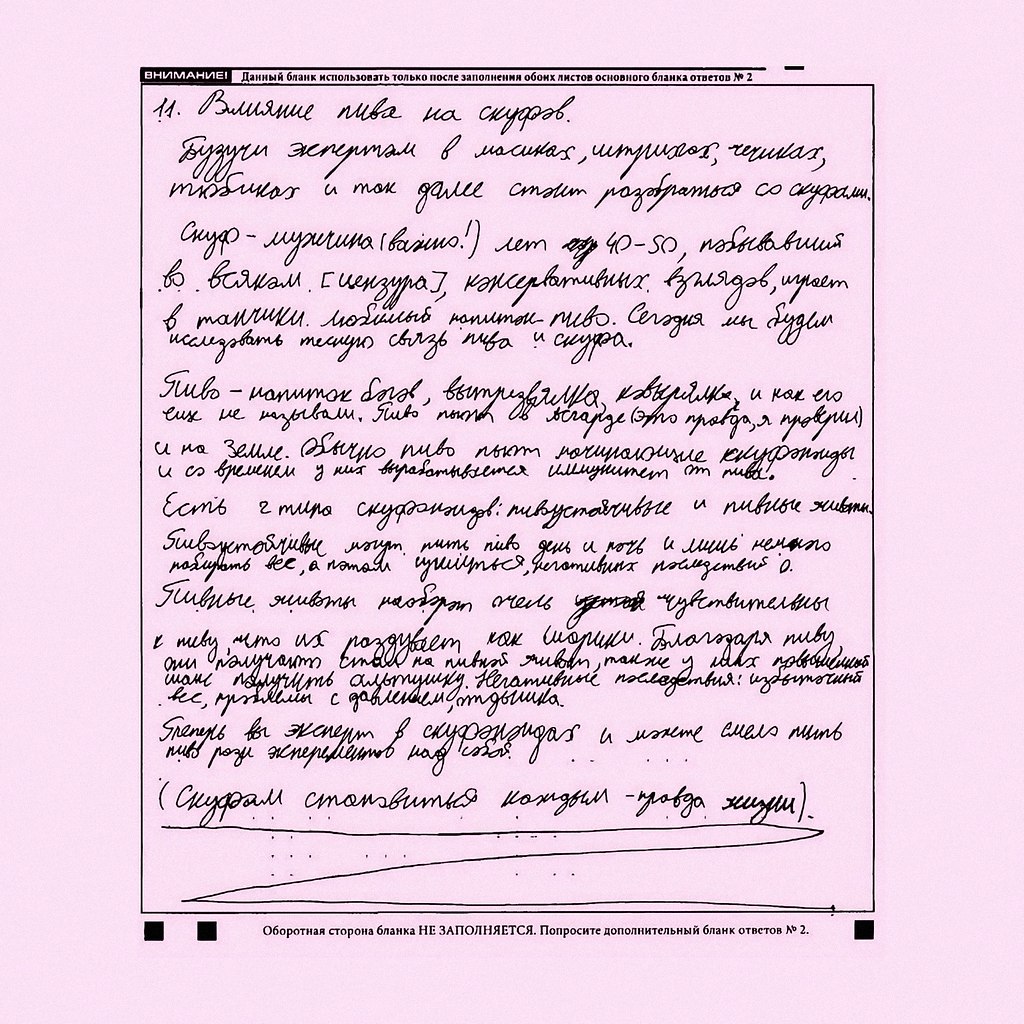 ВНИМАНИЕ! Данный бланк использовать только после заполнения обоих листов основного бланка ответов № 2
11. Влияние пива на скуфов.
Будучи экспертом в масиках, штрихах, чечиках,
тюбиках и так далее стоит разобраться со скуфами.
Скуф - мужчина (важно!) лет 40-50, побывавший
во всяком [цензура], консервативных взглядов, играет
в танчики. Любимый напиток - пиво. Сегодня мы будем
исследовать тесную связь пива и скуфа.
Пиво - напиток богов, вытрезвялка, ковырялка, и как его
еще не называли. Пиво пьют в Асгарде (это правда, я проверил)
и на Земле. Обычно пиво пьют начинающие скуфоноиды
и со временем у них вырабатывается иммунитет от пива.
Есть 2 типа : пивоустойчивые и пивные животы.
Пивоустойчивые могут пить пиво день и ночь и лишь немного
набирать вес, а потом сушиться, негативных последствий 0.
Пивные животы наоборот очень чувствительны
к пиву, что их раздувает как шарики. Благодаря пиву
они получают стан на пивной живот, также у них повышенный
шанс получить альтушку. Негативные последствия: избыточный
вес, проблемы с давлением, отдышка.
Теперь вы эксперт в скуфоноидах и можете смело пить
пиво ради эксперементов над собой.
(Скуфом становиться каждым - правда жизни).
Оборотная сторона бланка НЕ ЗАПОЛНЯЕТСЯ. Попросите дополнительный бланк ответов № 2.